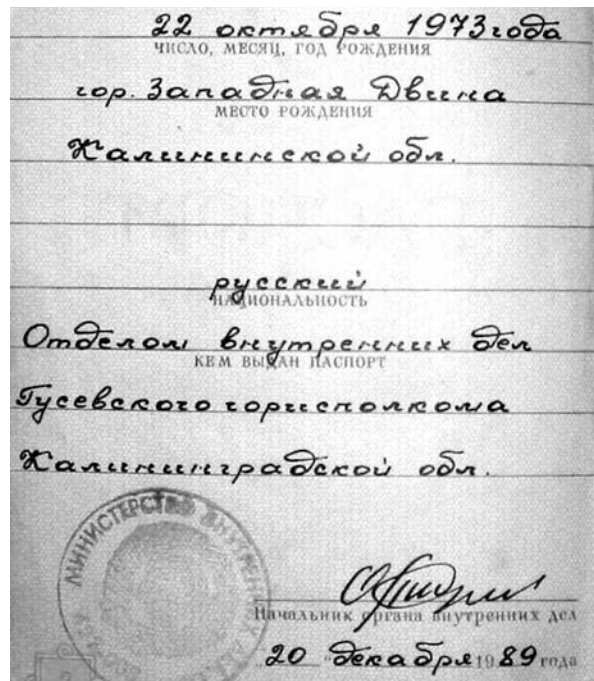 22 октября 1973 года
ЧИСЛО, МЕСЯЦ, ГОД РОЖДЕНИЯ
гор. Западная Двина
МЕСТО РОЖДЕНИЯ
Калининской обл.
русский
НАЦИОНАЛЬНОСТЬ
Отделом внутренних дел
КЕМ ВЫДАН ПАСПОРТ
Гусевского горисполкома
Калининградской обл.
МИНИСТЕРСТВО ВНУТРЕННИХ ДЕЛ
Начальник органа внутренних дел
"20" декабря 1989 года